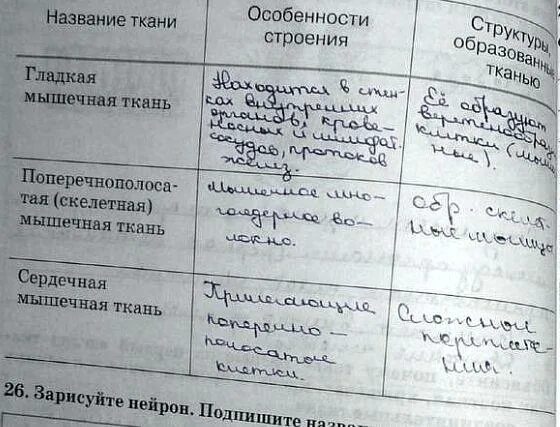 Название ткани
Особенности
строения
Структуры,
образованные
тканью
Гладкая
мышечная ткань
Находится в стен-
ках внутренних
органов, крове-
носных и лимфат.
сосудов, протоков
желез.
Её образуют
веретенообраз.
клетки (мышеч
ные).
Поперечнополоса-
тая (скелетная)
мышечная ткань
Мышечное мно-
гоядерное во-
локно.
Обр. скелет
ные мышцы
Сердечная
мышечная ткань
Прилегающие
поперечно –
полосатые
клетки.
Сложной
переплете-
ния.
26. Зарисуйте нейрон. Подпишите назва